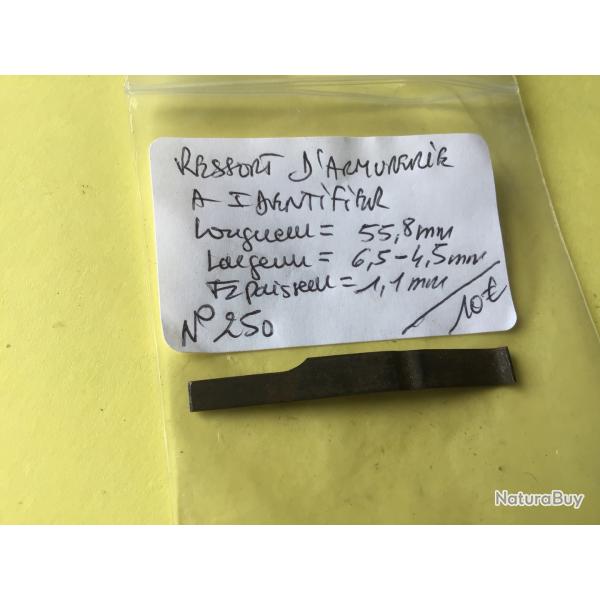 RESSORT D'ARMURERIE
A IDENTIFIER
Longueur = 55,8 mm
Largeur = 6,5-4,5 mm
Epaisseur = 1,1 mm
N° 250
10€
NaturaBuy